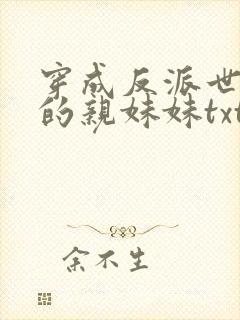 穿成反派世
的亲妹妹txt
余不生